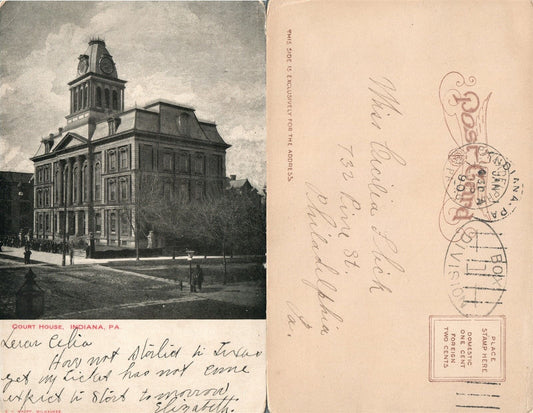 COURT HOUSE, INDIANA, PA.
Dear Celia
Have not started to Texas
yet my ticket has not come
expect to start tomorrow
Elizabeth
THIS SIDE IS EXCLUSIVELY FOR THE ADDRESS.
Miss Cecilia Slick
732 Pine St.
Philadelphia
Pa.
Post Card
INDIANA, PA.
PLACE
STAMP HERE
DOMESTIC
ONE CENT
FOREIGN
TWO CENTS